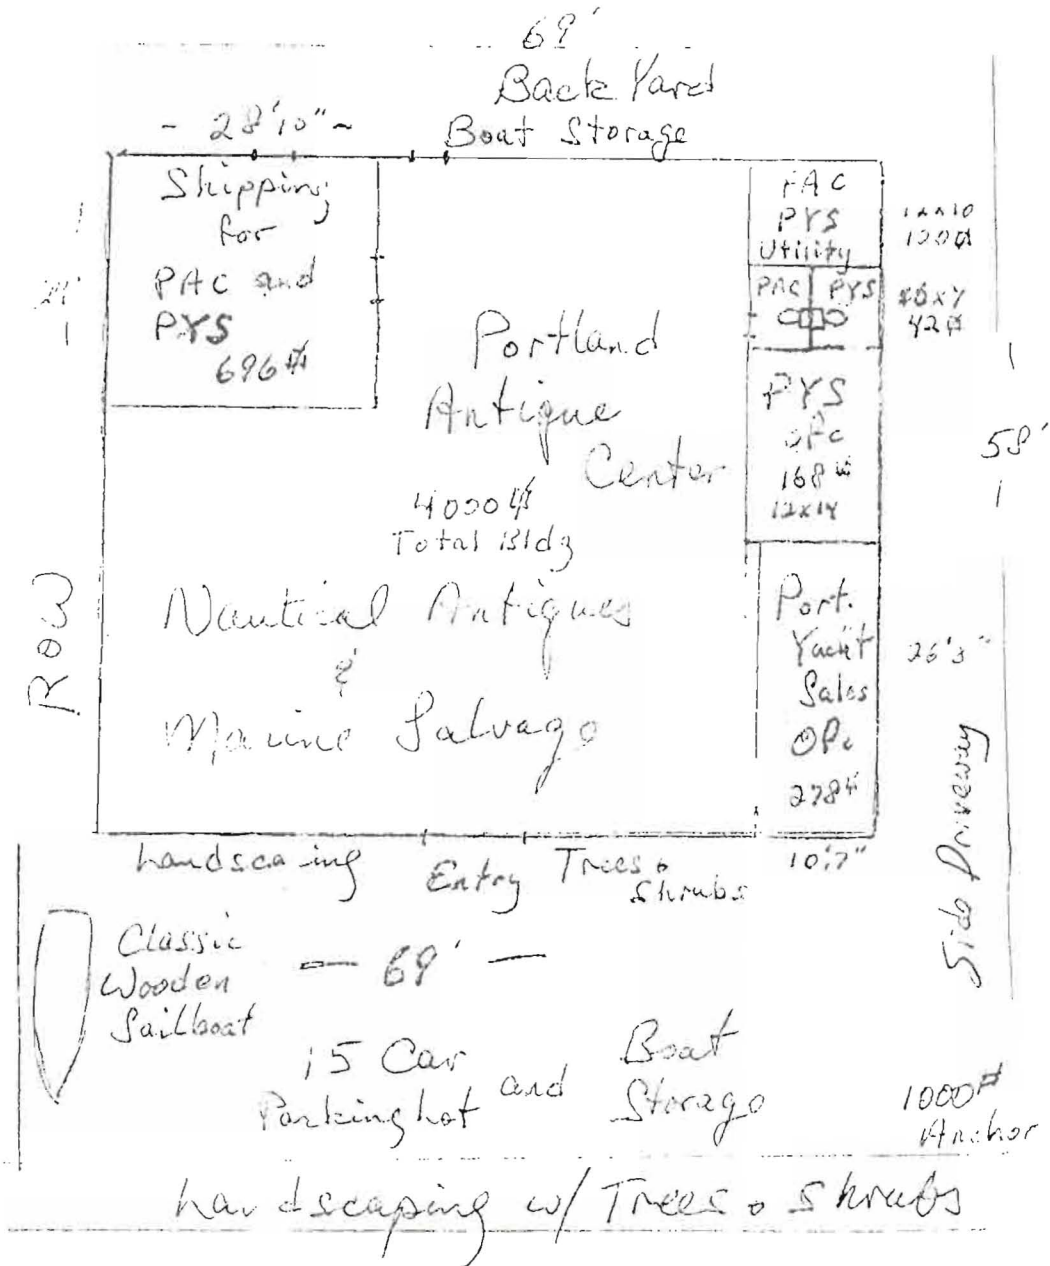 69'
Back Yard
Boat Storage
- 28'10" -
Shipping
for
PAC and
PYS
696#
PAC
PYS
Utility
12x10
120#
PAC PYS
42#
Portland
Antique
Center
4000#
Total Bldg
PYS
ofc
168#
12x14
58'
Nautical Antiques
&
Marine Salvage
ROW
Port.
Yacht
Sales
Ofc
278#
26'3"
10'7"
Side Driveway
Landscaping Entry Trees &
Shrubs
Classic
Wooden
Sailboat
— 69' —
15 Car
Parking Lot and
Boat
Storage
1000#
Anchor
Landscaping w/ Trees & Shrubs